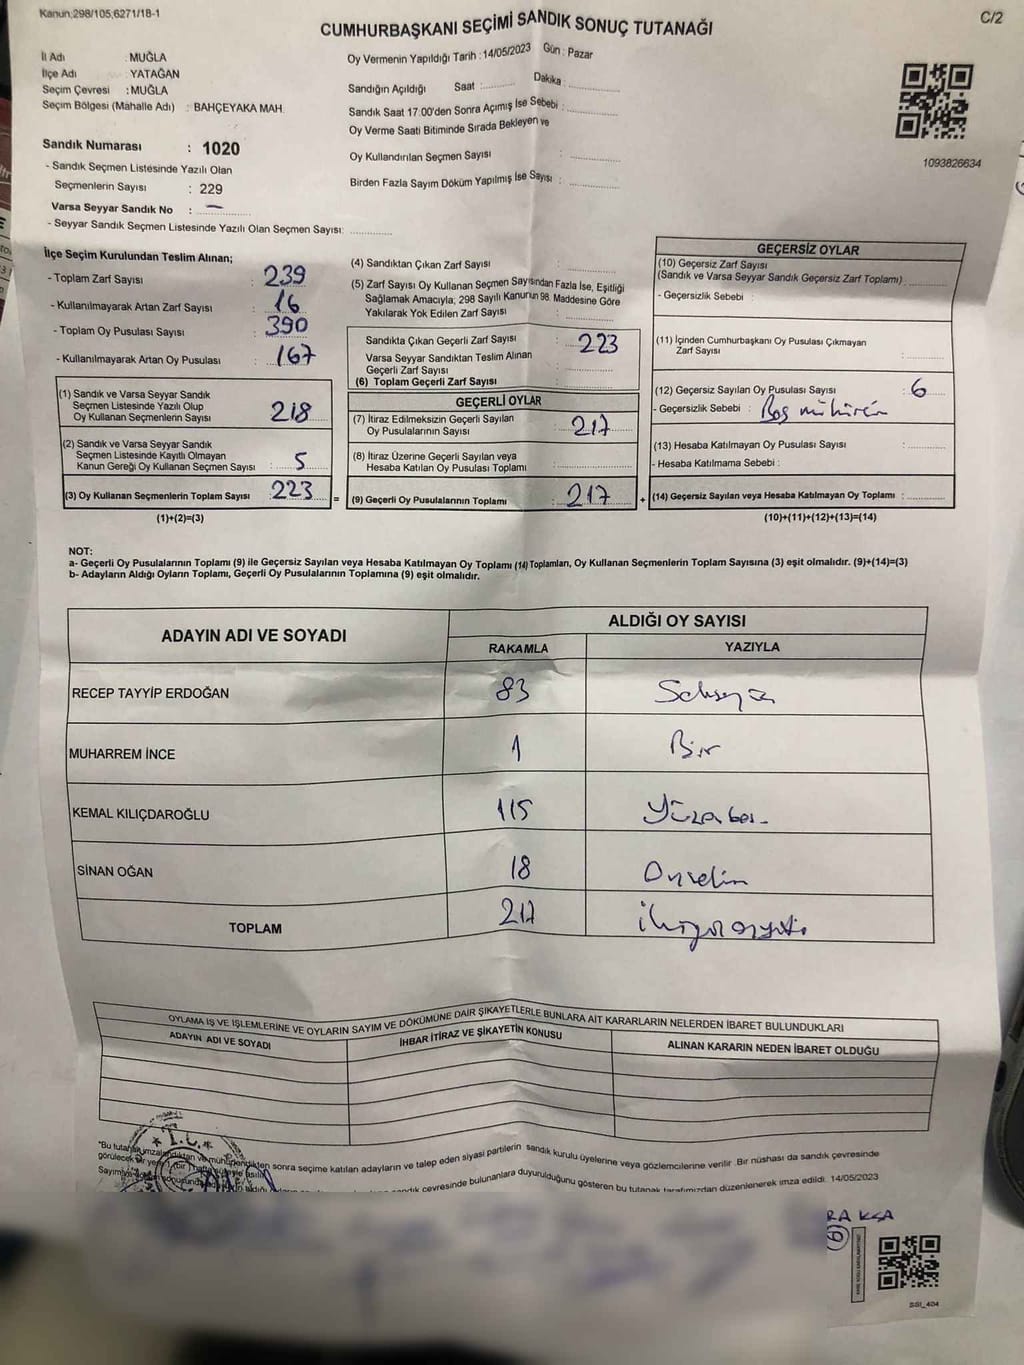 Kanun;298/105;6271/18-1
C/2
CUMHURBAŞKANI SEÇİMİ SANDIK SONUÇ TUTANAĞI
İl Adı : MUĞLA
İlçe Adı : YATAĞAN
Seçim Çevresi : MUĞLA
Seçim Bölgesi (Mahalle Adı) : BAHÇEYAKA MAH.
Sandık Numarası : 1020
- Sandık Seçmen Listesinde Yazılı Olan
Seçmenlerin Sayısı : 229
Varsa Seyyar Sandık No : –
- Seyyar Sandık Seçmen Listesinde Yazılı Olan Seçmen Sayısı:
Oy Vermenin Yapıldığı Tarih : 14/05/2023 Gün : Pazar
Sandığın Açıldığı Saat : Dakika :
Sandık Saat 17.00'den Sonra Açımış İse Sebebi :
Oy Verme Saati Bitiminde Sırada Bekleyen ve
Oy Kullandırılan Seçmen Sayısı :
Birden Fazla Sayım Döküm Yapılmış İse Sayısı :
1093826634
İlçe Seçim Kurulundan Teslim Alınan;
- Toplam Zarf Sayısı : 239
- Kullanılmayarak Artan Zarf Sayısı : 16
- Toplam Oy Pusulası Sayısı : 390
- Kullanılmayarak Artan Oy Pusulası : 167
(1) Sandık ve Varsa Seyyar Sandık
Seçmen Listesinde Yazılı Olup
Oy Kullanan Seçmenlerin Sayısı : 218
(2) Sandık ve Varsa Seyyar Sandık
Seçmen Listesinde Kayıtlı Olmayan
Kanun Gereği Oy Kullanan Seçmen Sayısı : 5
(3) Oy Kullanan Seçmenlerin Toplam Sayısı : 223 =
(1)+(2)=(3)
(4) Sandıktan Çıkan Zarf Sayısı :
(5) Zarf Sayısı Oy Kullanan Seçmen Sayısından Fazla İse, Eşitliği
Sağlamak Amacıyla; 298 Sayılı Kanunun 98. Maddesine Göre
Yakılarak Yok Edilen Zarf Sayısı :
Sandıkta Çıkan Geçerli Zarf Sayısı : 223
Varsa Seyyar Sandıktan Teslim Alınan
Geçerli Zarf Sayısı :
(6) Toplam Geçerli Zarf Sayısı :
GEÇERLİ OYLAR
(7) İtiraz Edilmeksizin Geçerli Sayılan
Oy Pusulalarının Sayısı : 217
(8) İtiraz Üzerine Geçerli Sayılan veya
Hesaba Katılan Oy Pusulası Toplamı :
(9) Geçerli Oy Pusulalarının Toplamı : 217 +
GEÇERSİZ OYLAR
(10) Geçersiz Zarf Sayısı
(Sandık ve Varsa Seyyar Sandık Geçersiz Zarf Toplamı) :
- Geçersizlik Sebebi :
(11) İçinden Cumhurbaşkanı Oy Pusulası Çıkmayan
Zarf Sayısı :
(12) Geçersiz Sayılan Oy Pusulası Sayısı : 6
- Geçersizlik Sebebi :
(13) Hesaba Katılmayan Oy Pusulası Sayısı :
- Hesaba Katılmama Sebebi :
(14) Geçersiz Sayılan veya Hesaba Katılmayan Oy Toplamı :
(10)+(11)+(12)+(13)=(14)
NOT:
a- Geçerli Oy Pusulalarının Toplamı (9) ile Geçersiz Sayılan veya Hesaba Katılmayan Oy Toplamı (14) Toplamları, Oy Kullanan Seçmenlerin Toplam Sayısına (3) eşit olmalıdır. (9)+(14)=(3)
b- Adayların Aldığı Oyların Toplamı, Geçerli Oy Pusulalarının Toplamına (9) eşit olmalıdır.
ADAYIN ADI VE SOYADI
ALDIĞI OY SAYISI
RAKAMLA YAZIYLA
RECEP TAYYİP ERDOĞAN 83
MUHARREM İNCE 1 Bir
KEMAL KILIÇDAROĞLU 115
SİNAN OĞAN 18
TOPLAM 217
OYLAMA İŞ VE İŞLEMLERİNE VE OYLARIN SAYIM VE DÖKÜMÜNE DAİR ŞİKAYETLERLE BUNLARA AİT KARARLARIN NELERDEN İBARET BULUNDUKLARI
ADAYIN ADI VE SOYADI İHBAR İTİRAZ VE ŞİKAYETİN KONUSU ALINAN KARARIN NEDEN İBARET OLDUĞU
T.C.
"Bu tutanak imzalandıktan ve mühürlendikten sonra seçime katılan adayların ve talep eden siyasi partilerin sandık kurulu üyelerine veya gözlemcilerine verilir. Bir nüshası da sandık çevresinde
görülecek bir yere
çevresinde bulunanlara duyurulduğunu gösteren bu tutanak tarafımızdan düzenlenerek imza edildi. 14/05/2023
SSI_404